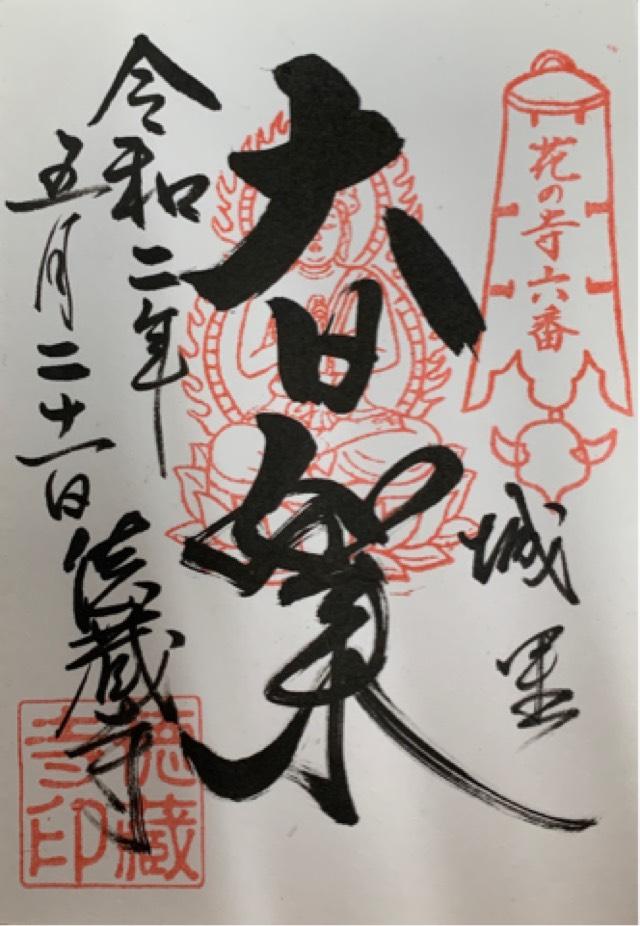 花の寺六番
城里
大日如来
令和二年
五月二十一日 徳蔵寺
徳蔵
寺印